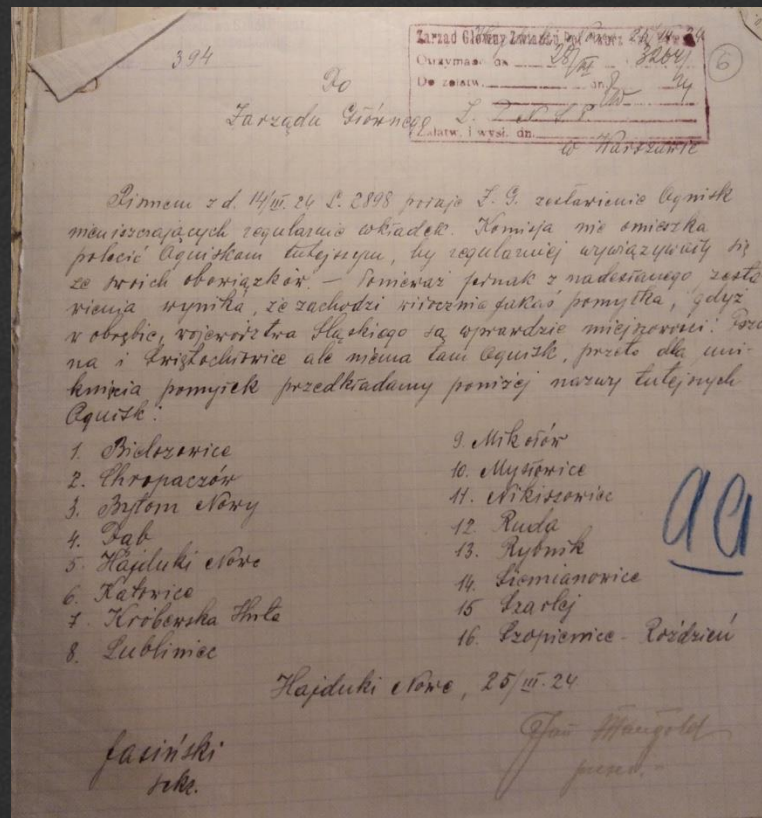 394
Zarząd Główny Związku
Otrzymano dn. 28/III 3264/
Do załatw. dn.
Załatw. i wysł. dn.
6
Do
Zarządu Głównego Z. P. N. S. P.
w Warszawie
Pismem z d. 14/III. 24 L. 2898 podaje Z. G. zestawienie Ognisk
nieuiszczających regularnie wkładek. Komisja nie omieszka
polecić Ogniskom tutejszym, by regularniej wywiązywały się
ze swoich obowiązków. — Ponieważ jednak z nadesłanego zesta
wienia wynika, że zachodzi widocznie jakaś pomyłka, gdyż
w obrębie, województwa Śląskiego są wprawdzie miejscowości:
na i Świętochłowice ale niema tam Ognisk, przeto dla uni-
knięcia pomyłek przedkładamy poniżej nazwy tutejszych
Ognisk:
1. Bielszowice
2. Chropaczów
3. Bytom Nowy
4. Dąb
5. Hajduki Nowe
6. Katowice
7. Królewska Huta
8. Lubliniec
9. Mikołów
10. Mysłowice
11. Nikiszowiec
12. Ruda
13. Rybnik
14. Siemianowice
15 Szarlej
16. Szopienice - Roździeń
aa
Hajduki Nowe, 25/III. 24
Jasiński
sekr.
Jan Mangold